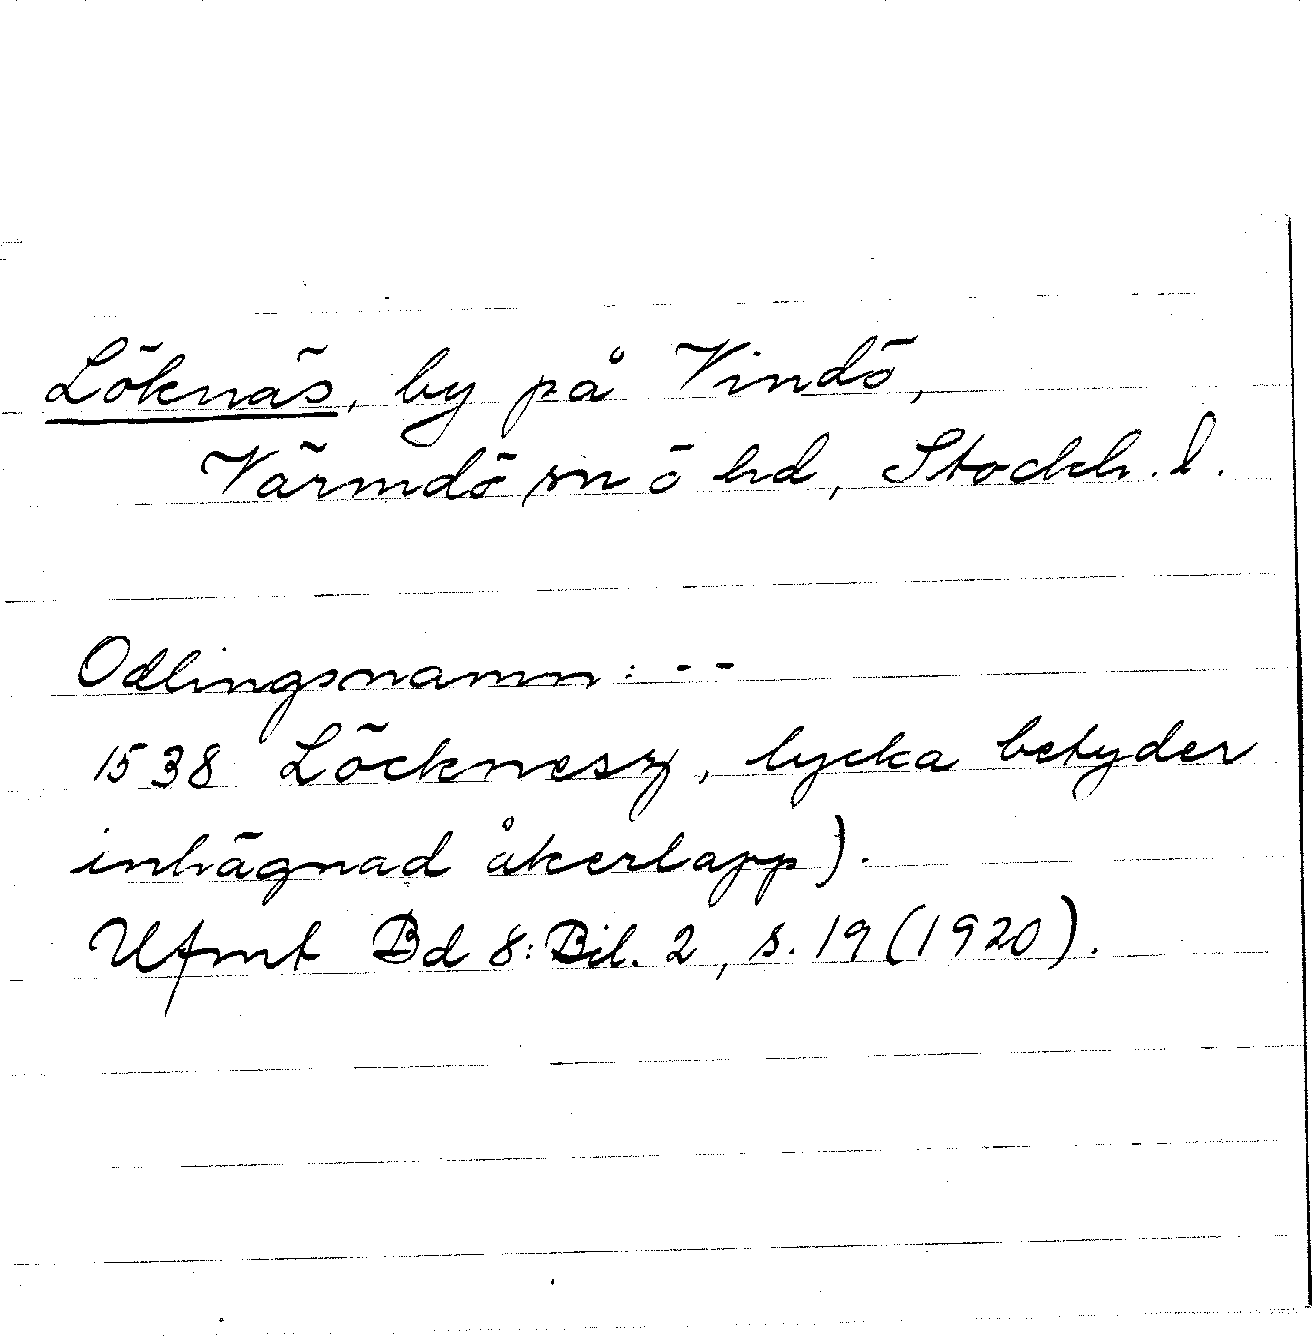 Löknäs, by på Vindö,
Värmdö sn ö hd, Stockh. l.
Odlingsnamn: --
1538 Löcknesz, lycka betyder
inhägnad åkerlapp).
Ufmt Bd 8: Bil. 2, s. 19 (1920).